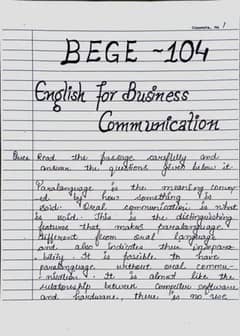 BEGE - 104
English for Business
Communication
Ques Read the passage carefully and
answer the questions given below it.
Paralanguage is the meaning convey-
ed by how something is
said. Oral communication is what
is said. This is the distinguishing
features that makes paralanguage
different from oral language
and also indicates their insepara-
bility. It is possible to have
paralanguage without oral commu-
nication. It is almost like the
relationship between computer software
and hardware, there is no use